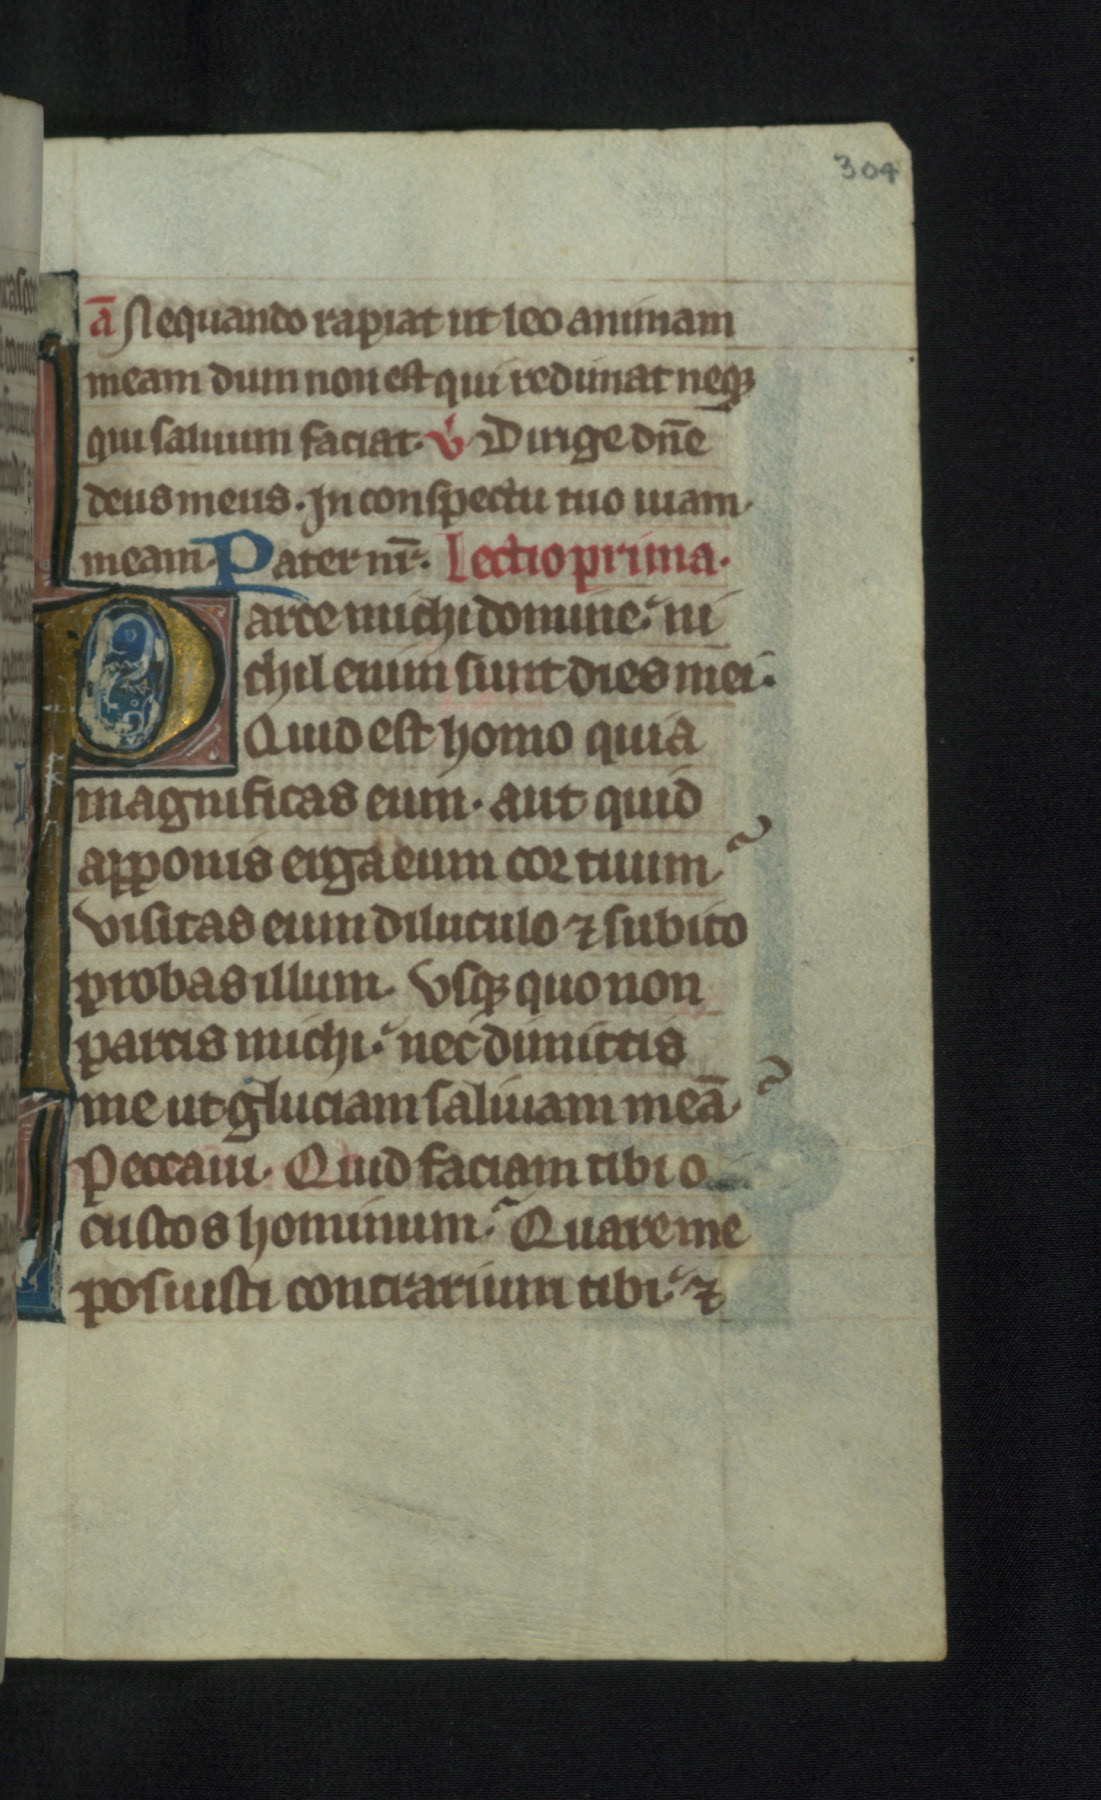 304
ā Nequando rapiat ut leo animam
meam dum non est qui redimat neqꝫ
qui saluum faciat. v̇ Dirige dn̄e
deus meus. In conspectu tuo uiam
meam. Pater nr̄. Lectio prima.
Parce michi domine: ni
chil enim sunt dies mei.
Quid est homo quia
magnificas eum. aut quid
apponis erga eum cor tuum
Visitas eum diluculo ⁊ subito
probas illum. Vsqꝫ quo non
parcis michi. nec dimittis
me ut gluciam saliuam meā.
Peccaui. Quid faciam tibi o
custos hominum. Quare me
posuisti contrarium tibi. ⁊